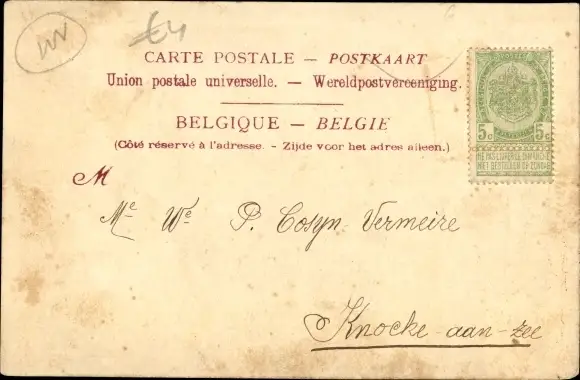 VV
€4
CARTE POSTALE — POSTKAART
Union postale universelle. — Wereldpostvereeniging.
BELGIQUE — BELGIE
(Côté réservé à l'adresse. - Zijde voor het adres alleen.)
POSTES
5c 5c
NE PAS LIVRER LE DIMANCHE
NIET BESTELLEN OP ZONDAG
M
Me We P. Cosyn-Vermeire
Knocke-aan-zee